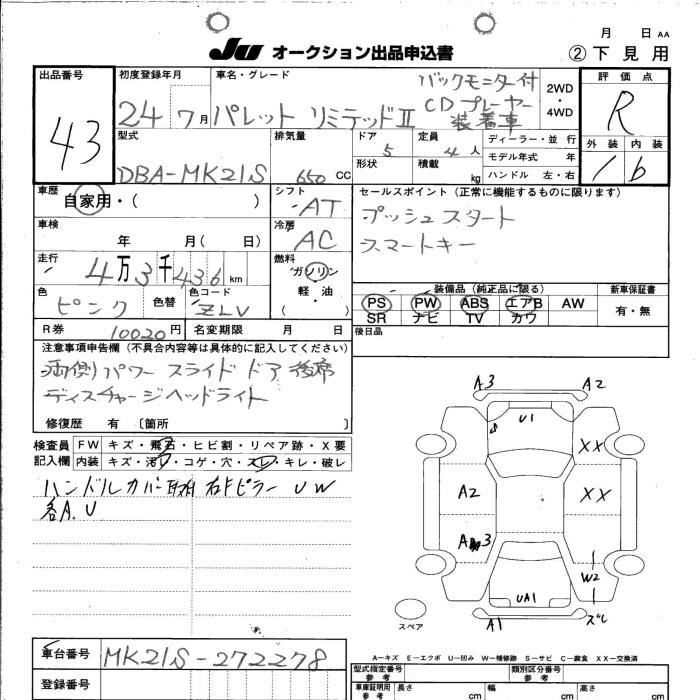 月 日 AA
JU オークション出品申込書 ②下見用
出品番号 43
初度登録年月 24 7月
車名・グレード パレット リミテッドⅡ
バックモニター付
CDプレーヤー
装着車
2WD・4WD
評価点 R
外装 内装
1 b
型式 DBA-MK21S
排気量 650 CC
ドア 5
形状
定員 4人
積載 kg
ディーラー・並行
モデル年式 年
ハンドル 左・右
車歴 自家用・( )
シフト AT
車検 年 月( 日)
冷房 AC
走行 4万3千436 km
燃料 ガソリン
軽・油
( )
色 ピンク 色替 色コード ZLV
R券 10020円 名変期限 月 日
セールスポイント(正常に機能するものに限ります)
プッシュスタート
スマートキー
装備品(純正品に限る) 新車保証書
PS PW ABS エアB AW 有・無
SR ナビ TV カワ
後日品
注意事項申告欄(不具合内容等は具体的に記入してください)
両側パワースライドドア 後席
ディスチャージヘッドライト
修復歴 有 〔箇所 〕
検査員 FW キズ・飛石・ヒビ割・リペア跡・X要
記入欄 内装 キズ・汚レ・コゲ・穴・スレ・キレ・破レ
ハンドルカバー取付 右Fピラー UW
各A.U
A3 A2
U1
XX
A2 XX
3
W2
UA1
A1 ズレ
スペア
A－キズ E－エクボ U－凹み W－補修跡 S－サビ C－腐食 XX－交換済
車台番号 MK21S-272278
登録番号
型式指定番号 参考 類別区分番号 参考
車庫証明用 参考 長さ cm 幅 cm 高さ cm